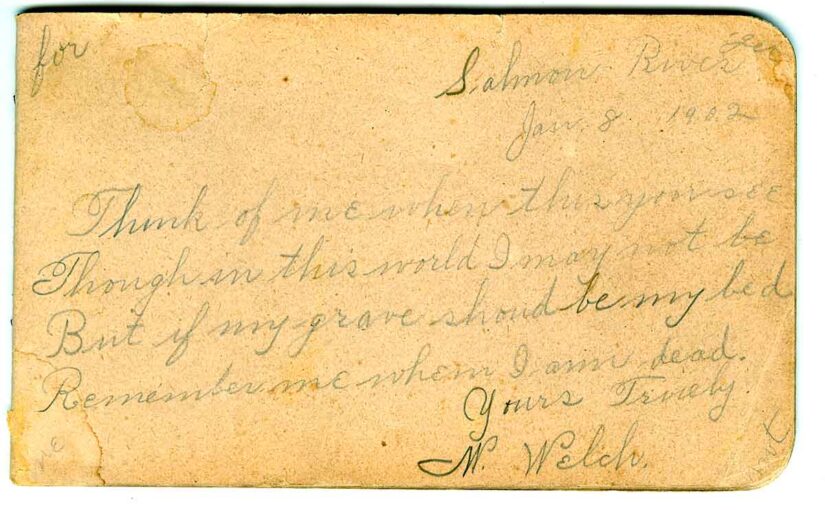 for get
Salmon River
Jan. 8 1902
Think of me when this you see
Though in this world I may not be
But if my grave shoud be my bed
Remember me when I am dead.
Yours Truely
W. Welch.
me not